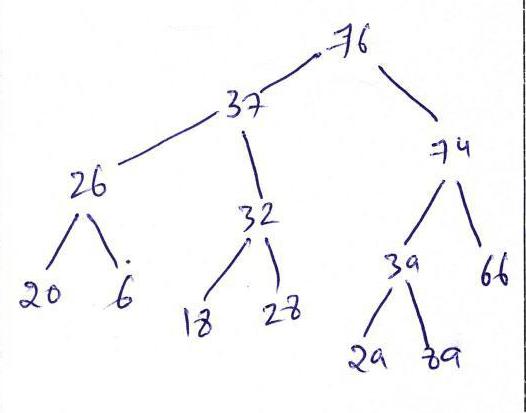 76
37
74
26
32
39 66
20 6
18 28
29